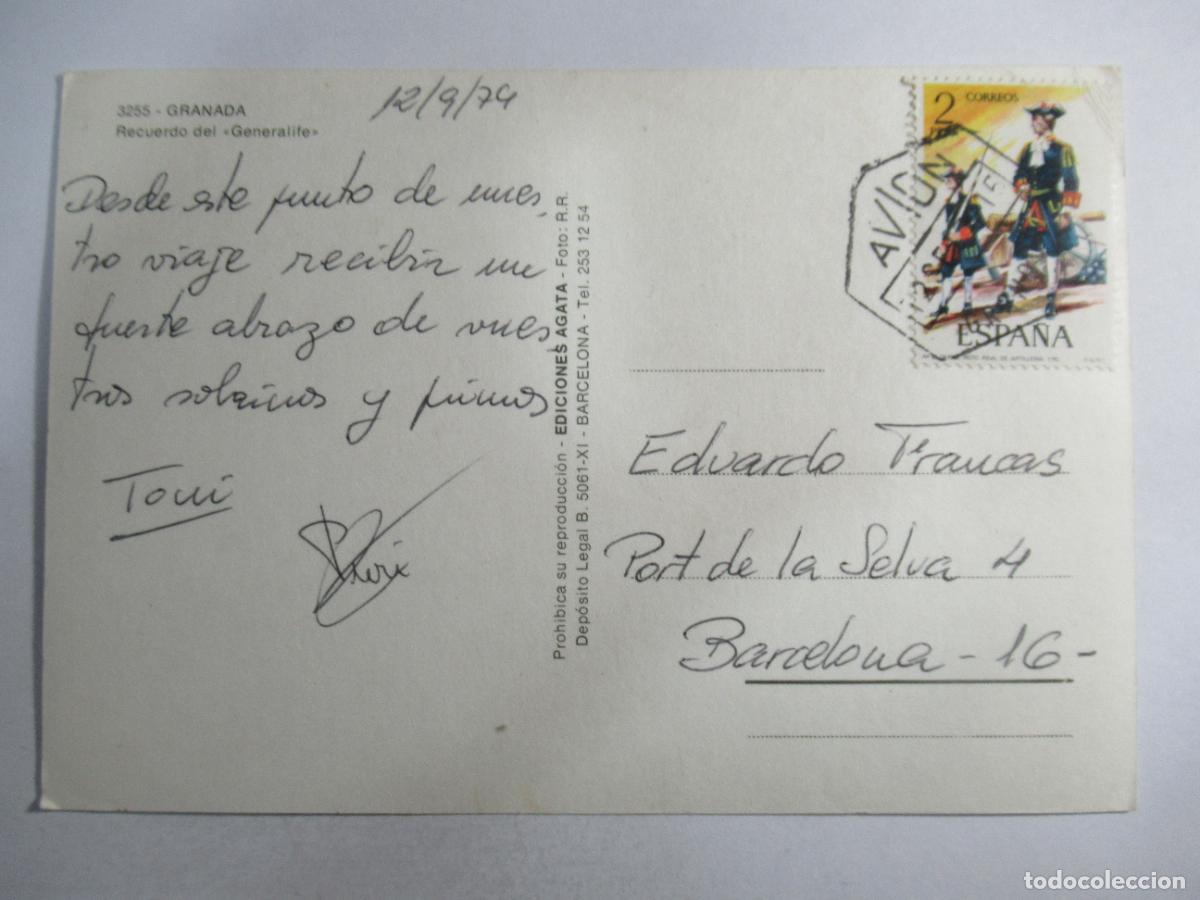 3255 - GRANADA
Recuerdo del «Generalife»
12/9/74
Desde este punto de nues-
tro viaje recibir un
fuerte abrazo de vues-
tros sobrinos y primos
Toni
Prohibica su reproducción - EDICIONES AGATA - Foto: R.R.
Depósito Legal B. 5061-XI - BARCELONA - Tel. 253 12 54
2 CORREOS
PTAS
AVION
ESPAÑA
Eduardo Francas
Port de la Selva 4
Barcelona - 16 -
todocoleccion